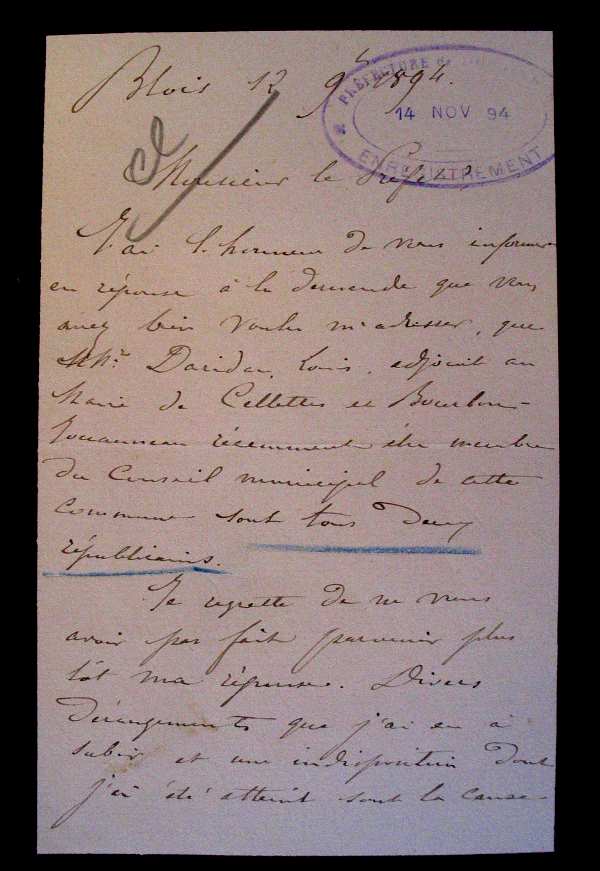 Blois 12 9bre 1894.
PRÉFECTURE
14 NOV 94
ENREGISTREMENT
Monsieur le Préfet
J'ai l'honneur de vous informer
en réponse à la demande que vous
avez bien voulu m'adresser, que
MMrs Daridan, Louis, adjoint au
Maire de Cellettes et Bourbon-
Jouanneau récemment élu membre
du Conseil municipal de cette
commune sont tous deux
républicains.
Je regrette de ne vous
avoir pas fait parvenir plus
tôt ma réponse. Divers
dérangements que j'ai eu à
subir et une indisposition dont
j'ai été atteint sont la cause